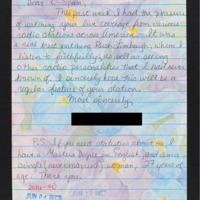 Dear C-Span,
This past week I had the pleasure
of watching your live coverage from various
radio stations across America. It was
a real treat watching Rush Limbaugh, whom I
listen to faithfully, as well as seeing
other radio personalities that I had never
known of. I sincerely hope this will be a
regular feature of your station.
Most sincerely,
P.S. If you need statistics about me, I
have a Masters Degree in English, and am a
single (never married) woman, 27 years of
age. Thank you.